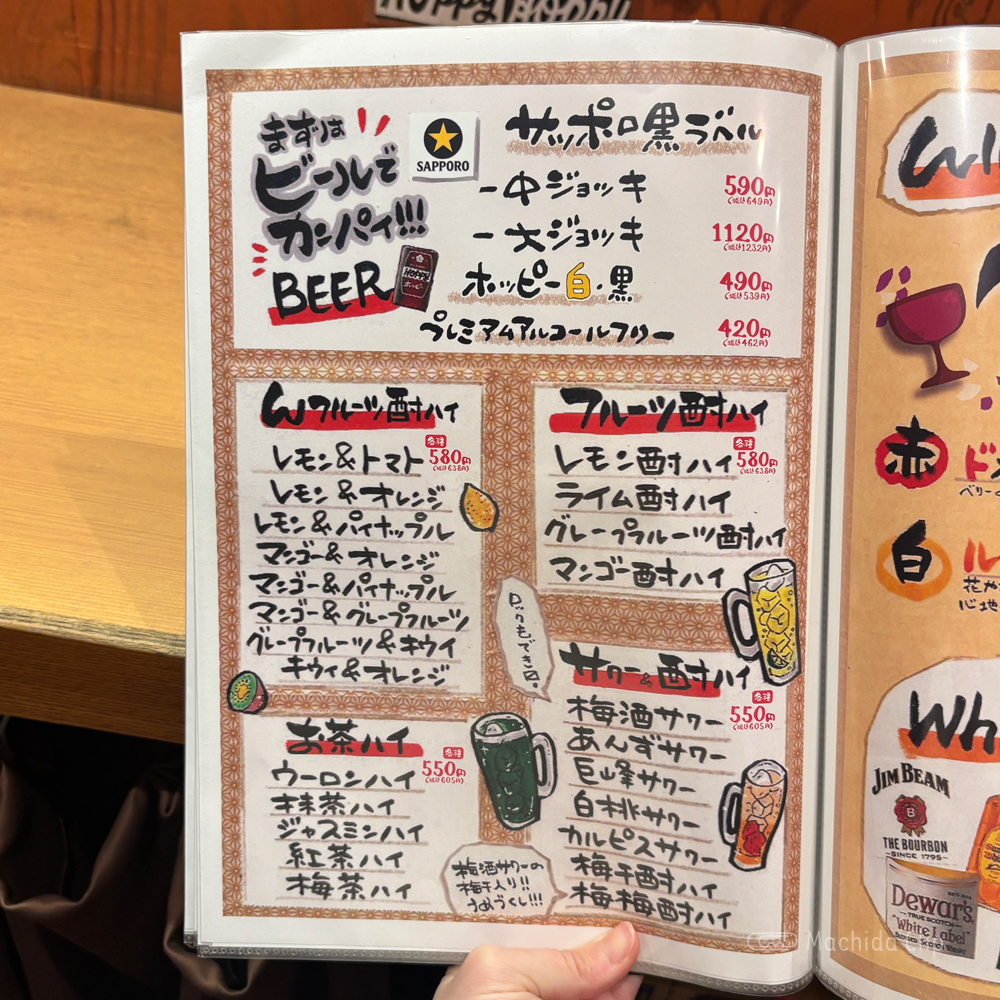 Hoppy Hoppy
まずは
ビールで
カンパイ!!!
BEER
SAPPORO
HOPPY
ホッピー
サッポロ黒ラベル
一中ジョッキ 590円
(税込649円)
一大ジョッキ 1120円
(税込1232円)
ホッピー白・黒 490円
(税込539円)
プレミアムアルコールフリー 420円
(税込462円)
Wフルーツ酎ハイ
各種
レモン&トマト 580円
(税込638円)
レモン&オレンジ
レモン&パイナップル
マンゴー&オレンジ
マンゴー&パイナップル
マンゴー&グレープフルーツ
グレープフルーツ&キウイ
キウイ&オレンジ
フルーツ酎ハイ
各種
レモン酎ハイ 580円
(税込638円)
ライム酎ハイ
グレープフルーツ酎ハイ
マンゴー酎ハイ
ロックもできます。
お茶ハイ
各種
ウーロンハイ 550円
(税込605円)
抹茶ハイ
ジャスミンハイ
紅茶ハイ
梅茶ハイ
サワー&酎ハイ
各種
梅酒サワー 550円
(税込605円)
あんずサワー
巨峰サワー
白桃サワー
カルピスサワー
梅干酎ハイ
梅梅酎ハイ
梅酒サワーの
梅干入り!!
うめづくし!!!
赤
白
花か
心地
Wh
JIM BEAM
B
THE BOURBON
SINCE 1795
Dewar's
TRUE SCOTCH
"White Label"
BLENDED SCOTCH WHISKY
Machida